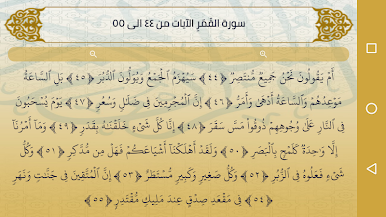 سورة القمر الآيات من ٤٤ الى ٥٥
أَمْ يَقُولُونَ نَحْنُ جَمِيعٌ مُنتَصِرٌ ﴿٤٤﴾ سَيُهْزَمُ الْجَمْعُ وَيُوَلُّونَ الدُّبُرَ ﴿٤٥﴾ بَلِ السَّاعَةُ
مَوْعِدُهُمْ وَالسَّاعَةُ أَدْهَىٰ وَأَمَرُّ ﴿٤٦﴾ إِنَّ الْمُجْرِمِينَ فِي ضَلَالٍ وَسُعُرٍ ﴿٤٧﴾ يَوْمَ يُسْحَبُونَ
فِي النَّارِ عَلَىٰ وُجُوهِهِمْ ذُوقُوا مَسَّ سَقَرَ ﴿٤٨﴾ إِنَّا كُلَّ شَيْءٍ خَلَقْنَاهُ بِقَدَرٍ ﴿٤٩﴾ وَمَا أَمْرُنَا
إِلَّا وَاحِدَةٌ كَلَمْحٍ بِالْبَصَرِ ﴿٥٠﴾ وَلَقَدْ أَهْلَكْنَا أَشْيَاعَكُمْ فَهَلْ مِن مُّدَّكِرٍ ﴿٥١﴾ وَكُلُّ
شَيْءٍ فَعَلُوهُ فِي الزُّبُرِ ﴿٥٢﴾ وَكُلُّ صَغِيرٍ وَكَبِيرٍ مُّسْتَطَرٌ ﴿٥٣﴾ إِنَّ الْمُتَّقِينَ فِي جَنَّاتٍ وَنَهَرٍ
﴿٥٤﴾ فِي مَقْعَدِ صِدْقٍ عِندَ مَلِيكٍ مُّقْتَدِرٍ ﴿٥٥﴾